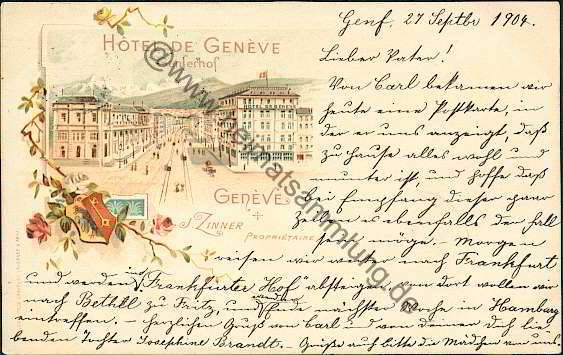 Genf. 27 Septbr 1904.
HÔTEL DE GENÈVE
Genferhof
GENÈVE
J. ZINNER
PROPRIÉTAIRE
Lieber Vater!
Von Carl bekamen wir
heute eine Postkarte, in
der er uns anzeigt, daß
zu Hause alles wohl und
munter ist, und hoffe daß
bei Empfang dieser paar
Zeilen es ebenfalls der Fall
sein möge. Morgen
reisen wir weiter nach Frankfurt
und werden im "Frankfurter Hof" absteigen, von dort wollen wir
nach Bethel zu Fritz, und Ende nächster Woche in Hamburg
eintreffen. – herzlichen Gruß von Carl und von deiner dich lie-
benden Tochter Josephine Brandt. – Grüße auch bitte die Mädchen von uns.
@www.heimatsammlung.de